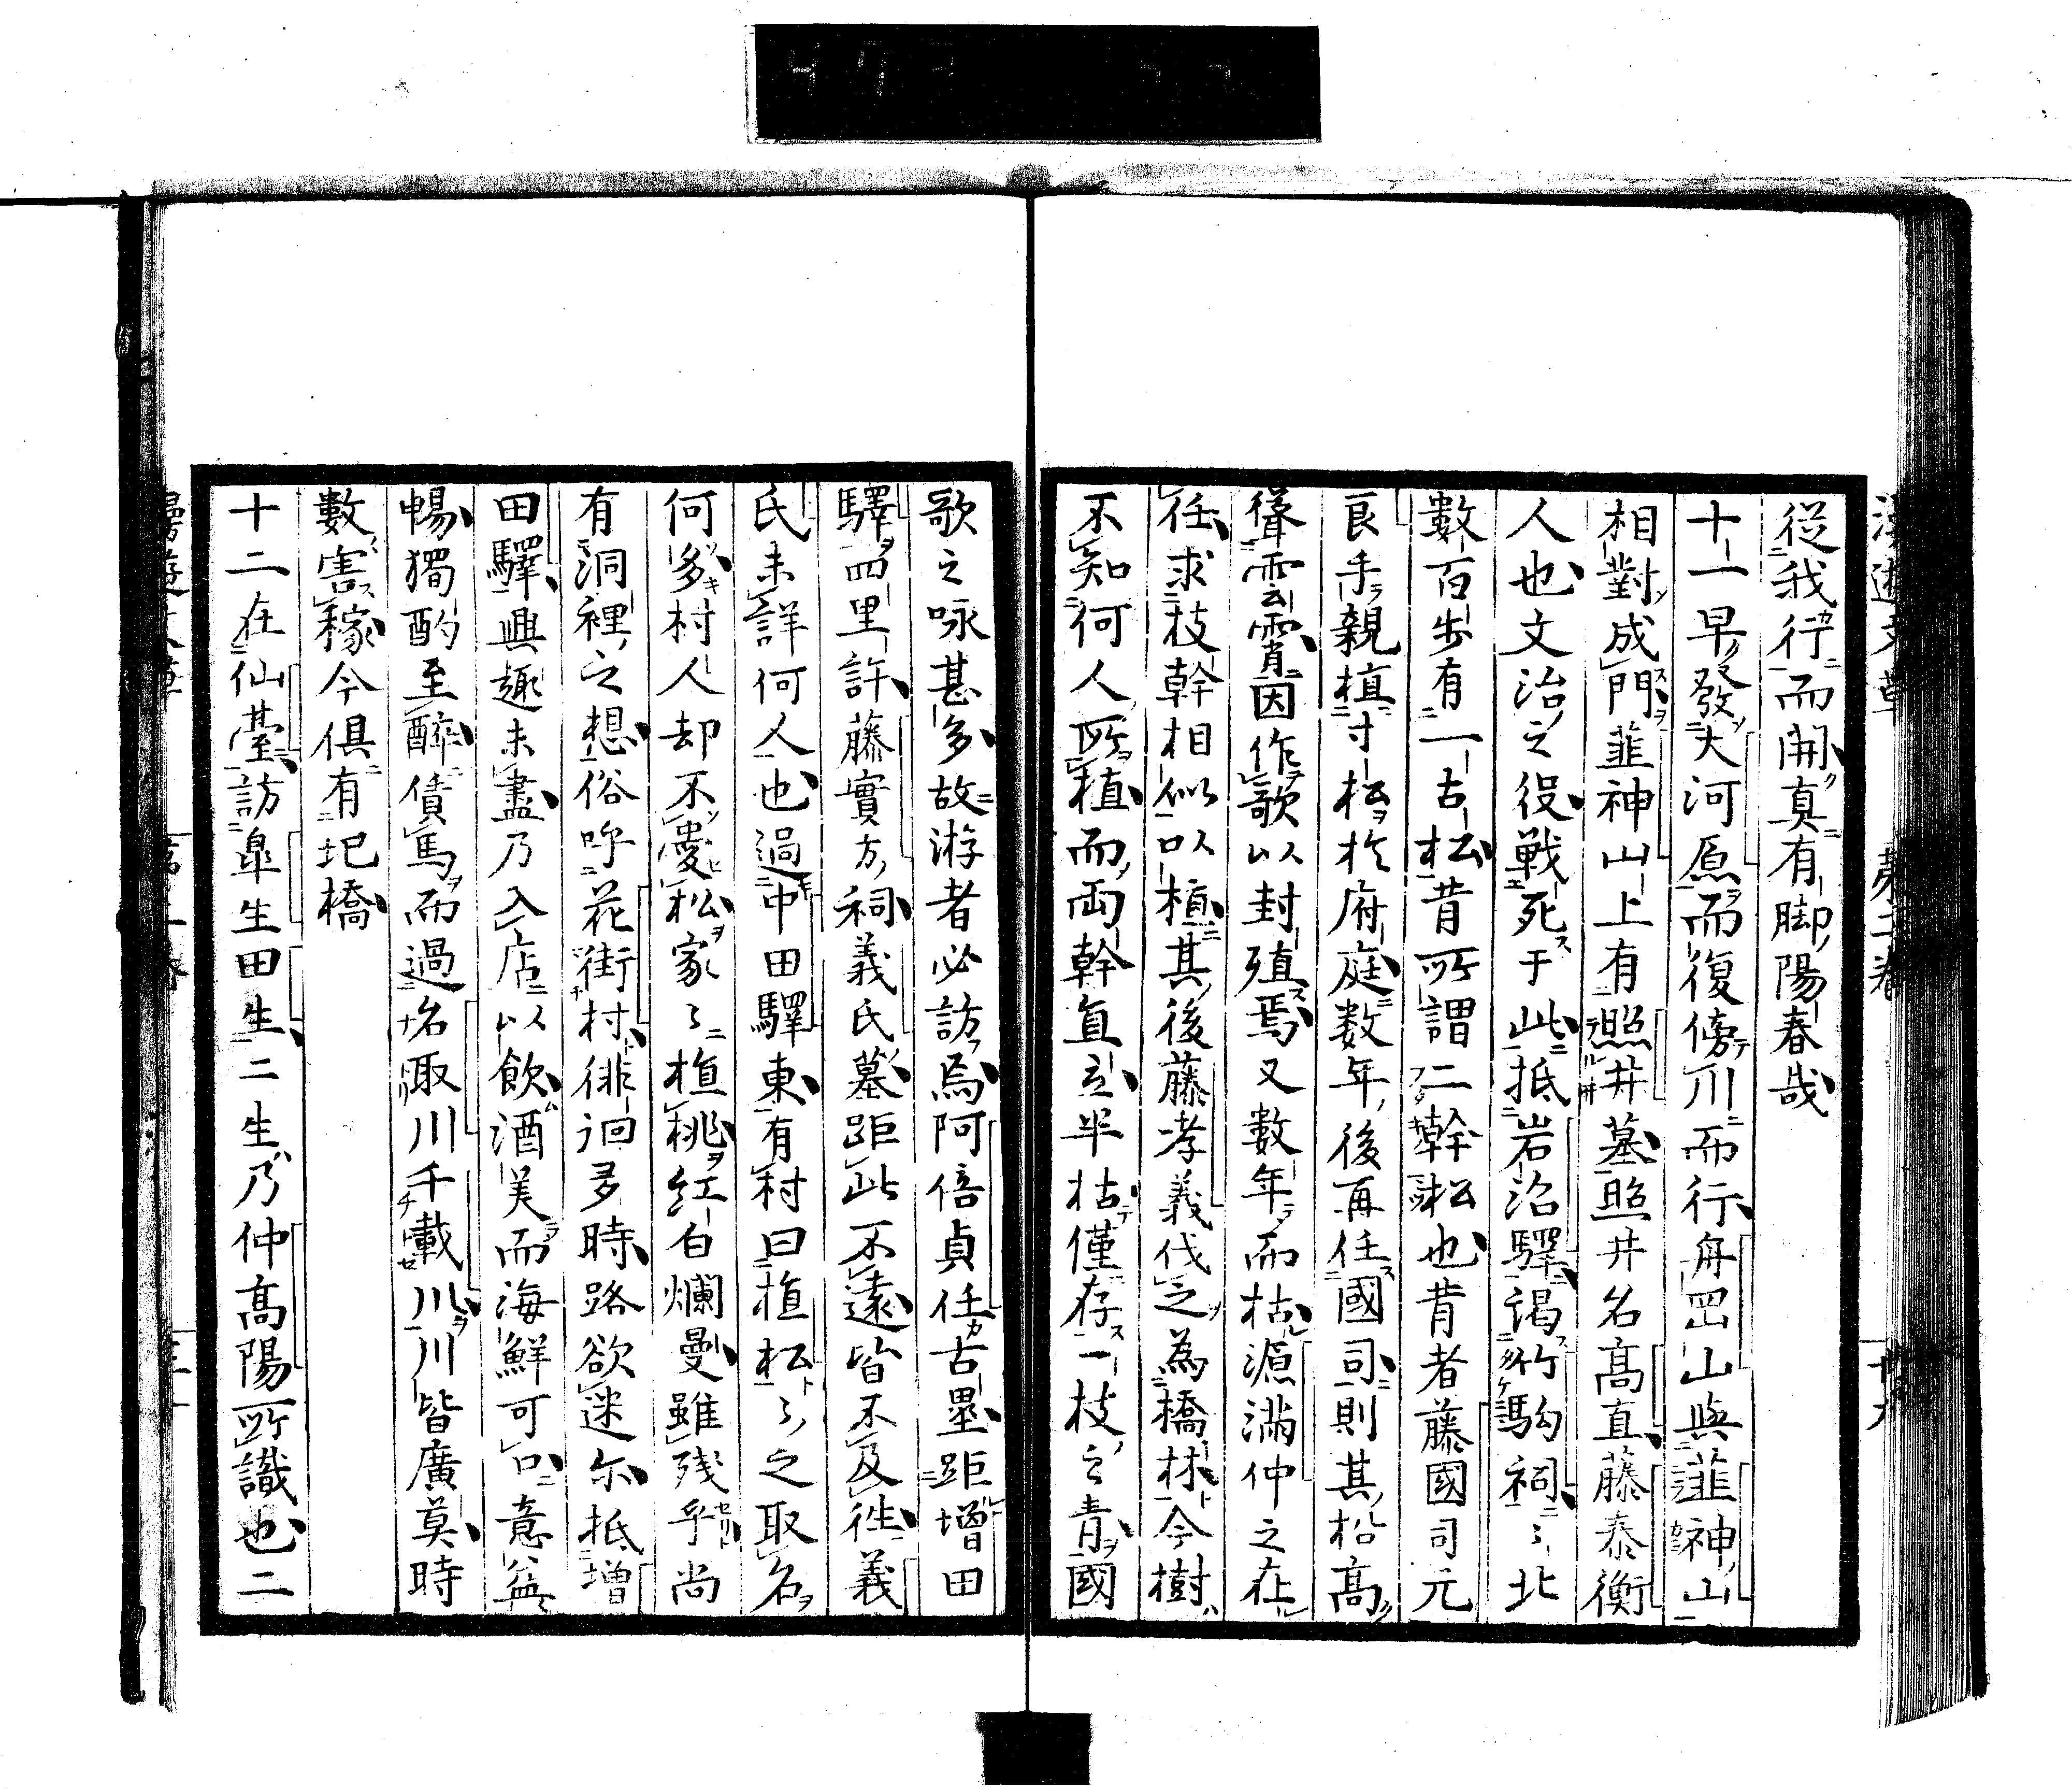 從我行而開真有脚陽春哉
十一早發大河原而復傍川而行舟岡山與韮神山
相對成門韮神山上有照井墓照井名高直藤泰衡
人也文治之役戰死于此抵岩沼驛謁竹駒祠〻北
數百步有一古松昔所謂二幹松也昔者藤國司元
良手親植寸松於府庭数年後再任國司則其松高
聳雲霄因作歌以封殖焉又數年而枯源滿仲之在
任求枝幹相似以植其後藤孝義伐之為橋材今樹
不知何人所植而兩幹直立半枯僅存一枝之青國
歌之咏甚多故游者必訪焉阿倍貞任古墨距增田
驛四里許藤實方祠義氏墓距此不遠皆不及徃義
氏未詳何人也過中田驛東有村曰植松〻之取名
何多村人却不愛松家〻植桃紅白爛曼雖殘乎尚
有洞裡之想俗呼花街村徘徊多時路欲迷尓抵增
田驛興趣未盡乃入店以飲酒美而海鮮可口意益
暢獨酌至醉債馬而過名取川千載川川皆廣莫時
數害稼今俱有圯橋
十二在仙臺訪皐生田生二生乃仲高陽所識也二